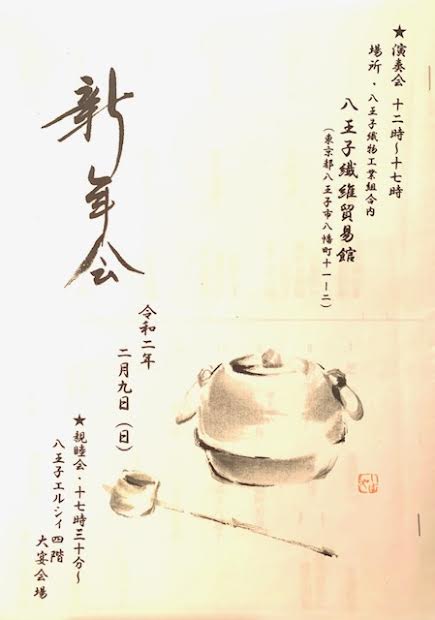 ★演奏会 十二時～十七時
場所・八王子織物工業組合内
八王子繊維貿易館
（東京都八王子市八幡町十一ー二）
新年会
令和二年
二月九日（日）
★親睦会・十七時三十分～
八王子エルシィ四階
大宴会場